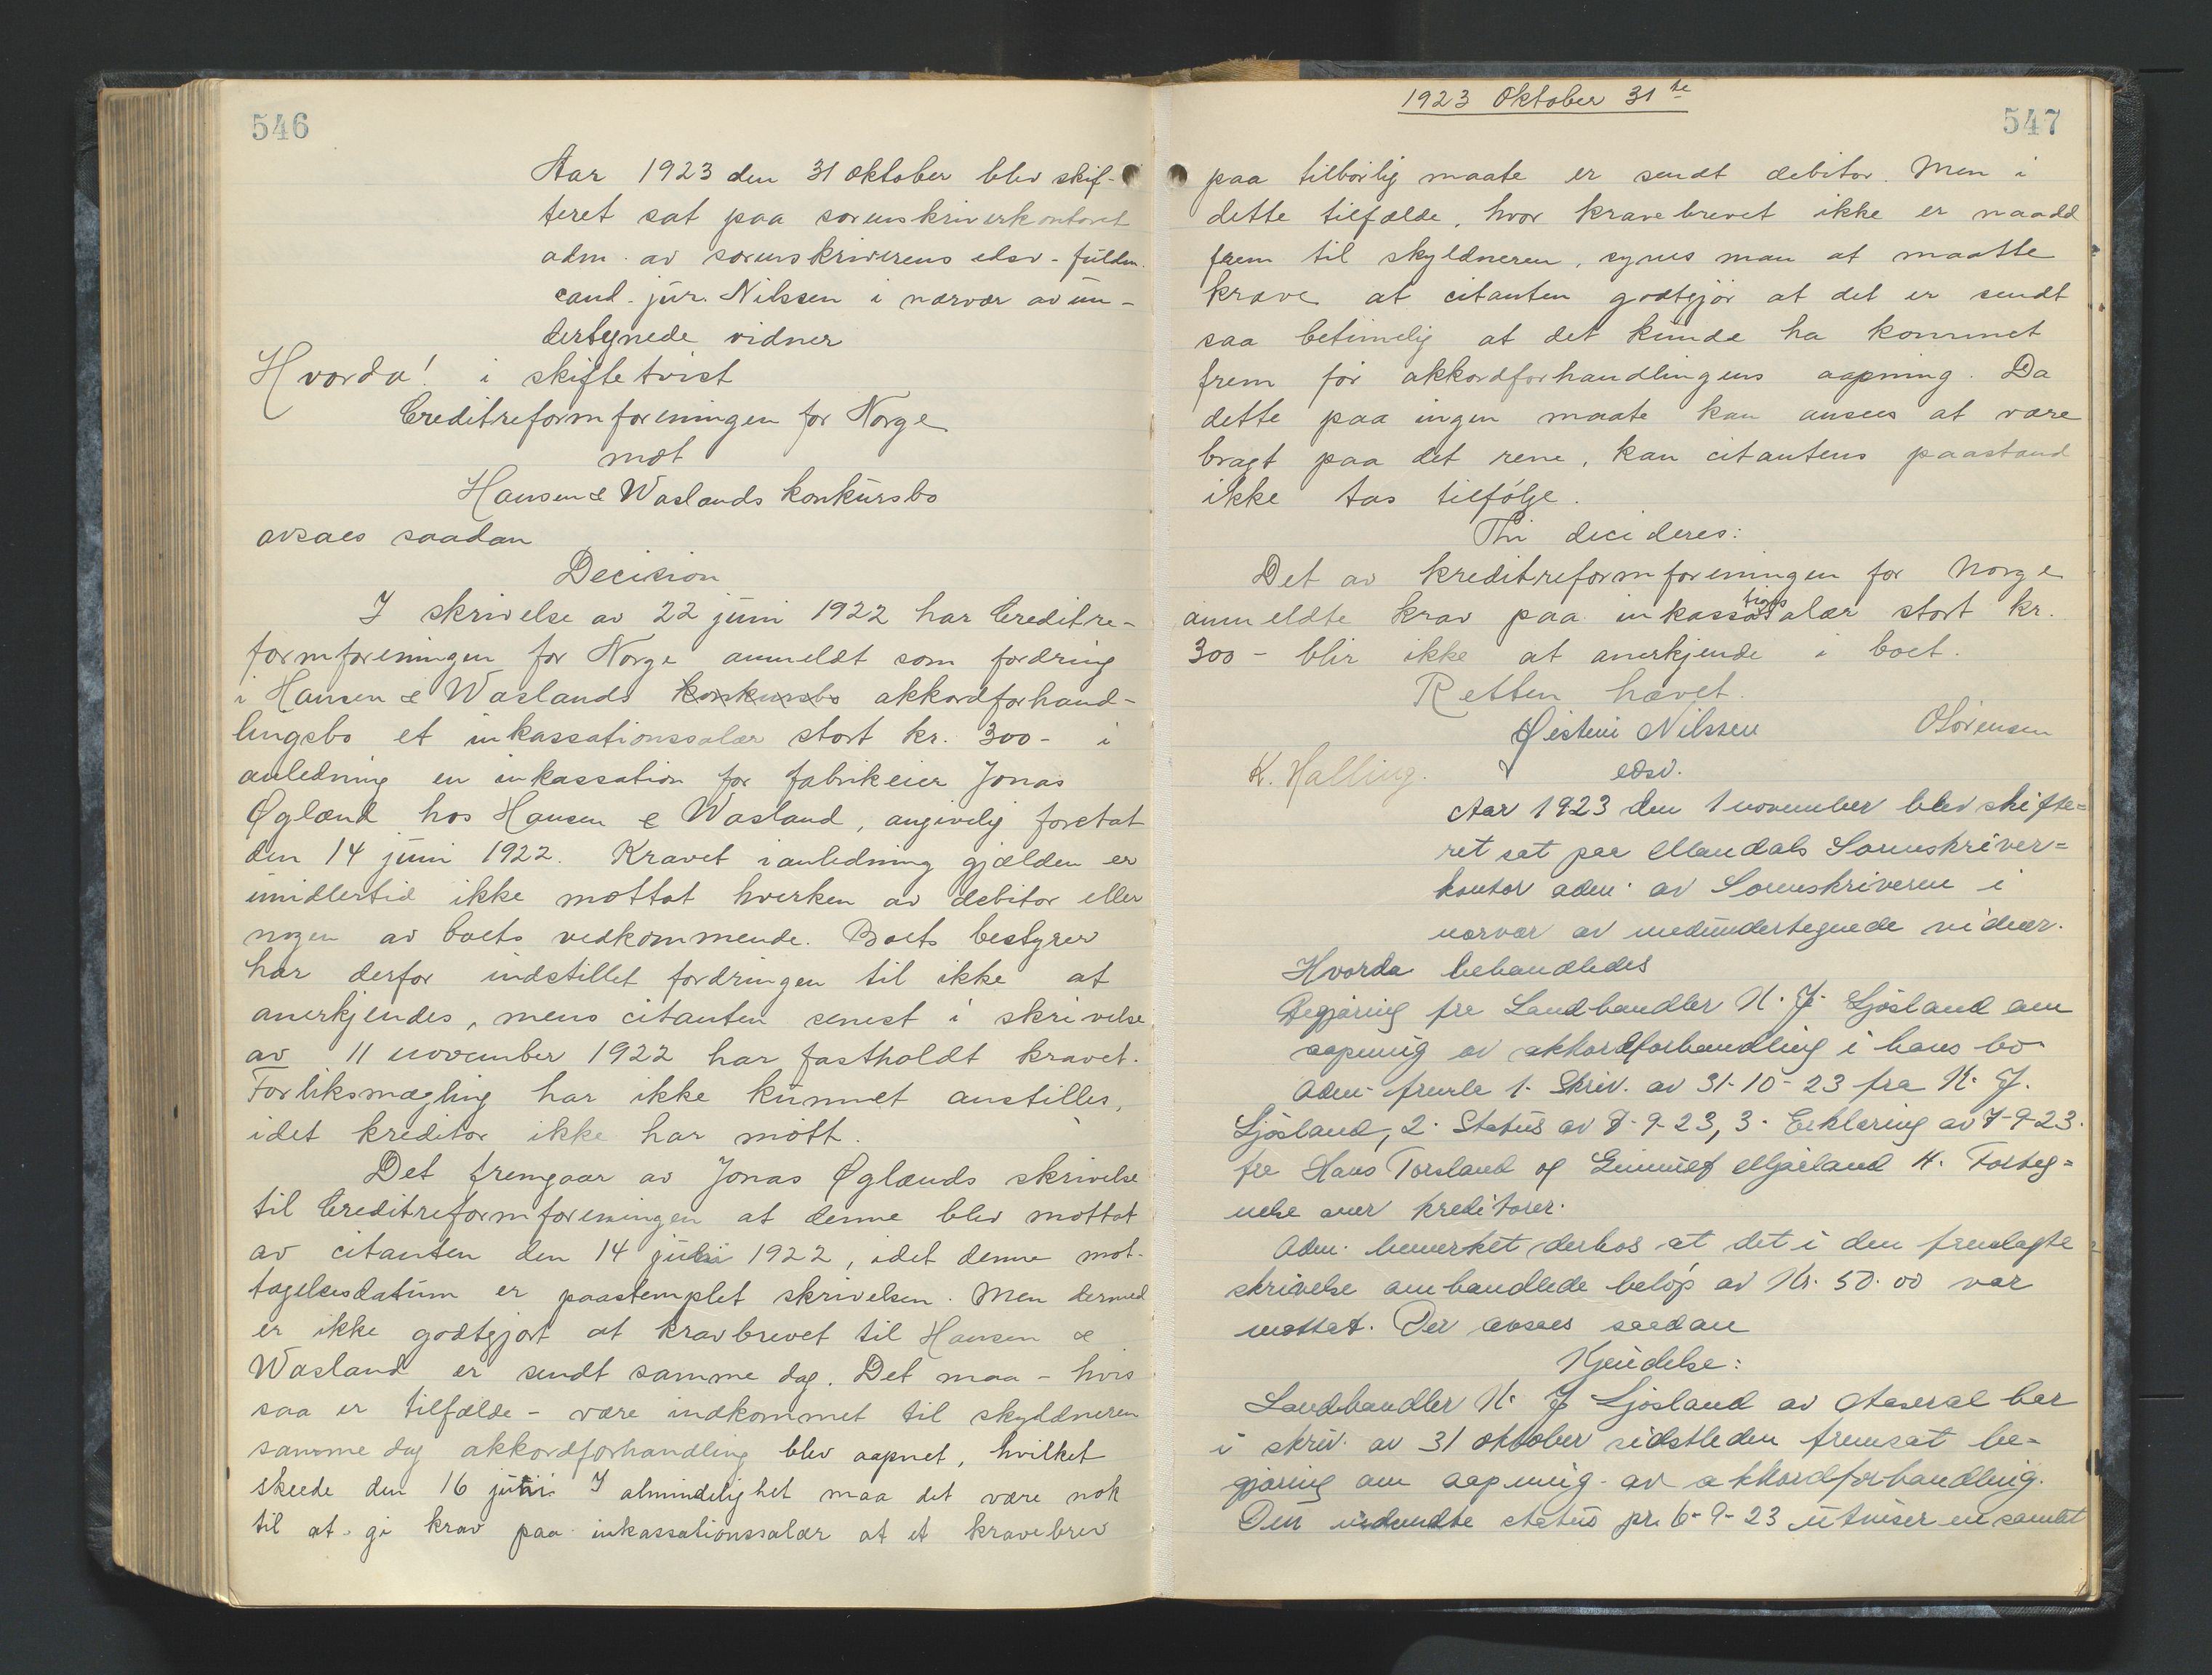 546
Aar 1923 den 31 oktober blev skif-
teret sat paa sorenskriverkontoret
adm. av sorenskriverens edsv. fuldm.
cand. jur. Nilssen i nærvær av un-
dertegnede vidner
Hvorda! i skiftetvist
Creditreformforeningen for Norge
mot
Hansen & Waslands konkursbo
avsaes saadan
Decision
I skrivelse av 22 juni 1922 har Creditre-
formforeningen for Norge anmeldt som fordring
i Hansen & Waslands konkursbo akkordforhand-
lingsbo et inkassationssalær stort kr. 300- i
anledning en inkassation for fabrikeier Jonas
Øglænd hos Hansen & Wasland, angivelig foretat
den 14 juni 1922. Kravet i anledning gjælden er
imidlertid ikke mottat hverken av debitor eller
nogen av boets vedkommende. Boets bestyrer
har derfor indstillet fordringen til ikke at
anerkjendes, mens citanten senest i skrivelse
av 11 november 1922 har fastholdt kravet.
Forliksmægling har ikke kunnet anstilles,
idet kreditor ikke har møtt.
Det fremgaar av Jonas Øglænds skrivelse
til Creditreformforeningen at denne blev mottat
av citanten den 14 juni 1922, idet denne mot-
tagelsesdatum er paastemplet skrivelsen. Men dermed
er ikke godtgjort at kravbrevet til Hansen &
Wasland er sendt samme dag. Det maa - hvis
saa er tilfælde - være indkommet til skyldneren
samme dag akkordforhandling blev aapnet, hvilket
skeede den 16 juni. I almindelighet maa det være nok
til at gi krav paa inkassationssalær at et kravebrev
1923 Oktober 31te
547
paa tilbørlig maate er sendt debitor. Men i
dette tilfælde, hvor kravebrevet ikke er naadd
frem til skyldneren, synes man at maatte
kræve at citanten godtgjør at det er sendt
saa betimelig at det kunde ha kommet
frem før akkordforhandlingens aapning. Da
dette paa ingen maate kan ansees at være
bragt paa det rene, kan citantens paastand
ikke tas tilfølge.
Thi decideres:
Det av kreditreformforeningen for Norge
anmeldte krav paa inkassationssalær stort kr.
300 - blir ikke at anerkjende i boet.
Retten hævet.
Øistein Nilssen OSörensen
K. Halling. edsv.
Aar 1923 den 1 november blev skifte=
ret sat paa Mandals Sorenskriver=
kontor adm. av Sorenskriveren i
nærvær av medundertegnede vidner.
Hvorda behandledes
Begjæring fra Landhandler K. J. Ljosland om
aapning av akkordforhandling i hans bo
Adm. fremla 1. Skriv. av 31-10-23 fra K. J.
Ljosland, 2. Status av 7-9-23, 3. Erklæring av 7-9-23.
fra Hans Torsland og Gunnulf Mjaaland 4. Forteg=
nelse over kreditorer.
Adm. bemerket derhos at det i den fremlagte
skrivelse omhandlede beløp av Kr. 50.00 var
mottat. Der avsaes saadan
Kjendelse:
Landhandler K. J. Ljosland av Aaseral har
i skriv. av 31 oktober sidstleden fremsat be=
gjæring om aapning av akkordforhandling.
Den indsendte status pr. 6-9-23 utviser en samlet